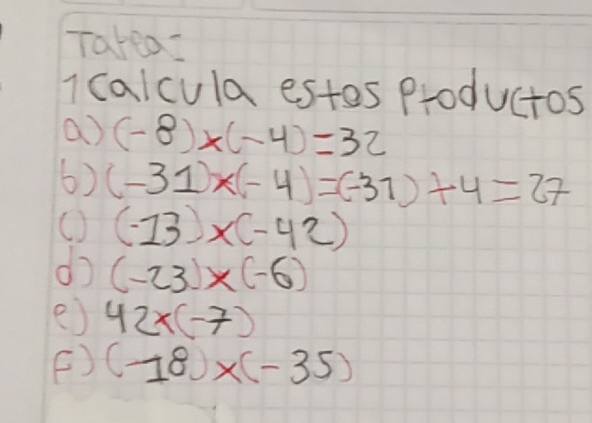 Tarea:
1 Calcula estos productos
a) (-8)×(-4)=32
b) (-31)×(-4)=(-31)+4=27
c) (-13)×(-42)
d) (-23)×(-6)
e) 42×(-7)
F) (-18)×(-35)